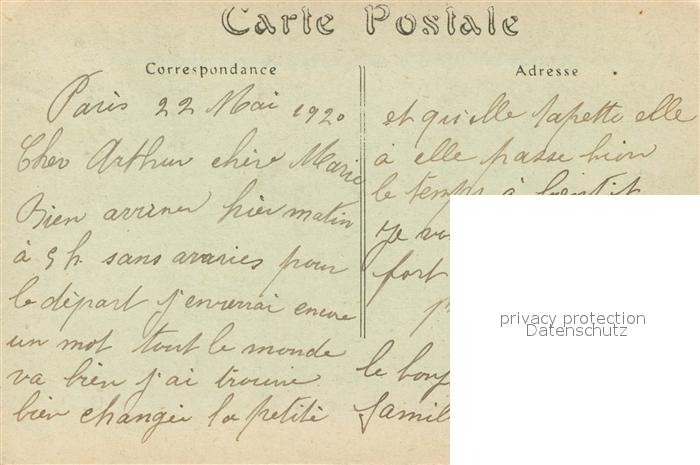 Carte Postale
Correspondance
Paris 22 Mai 1920
Cher Arthur chère Marie
Bien arriver hier matin
à 5 h. sans avaries pour
le départ j'enverrai encore
un mot tout le monde
va bien j'ai trouve
bien changée la petite
Adresse
et qu'elle tapette elle
à elle passe bien
le temps à bientôt
Je
fort
le
famil
privacy protection
Datenschutz